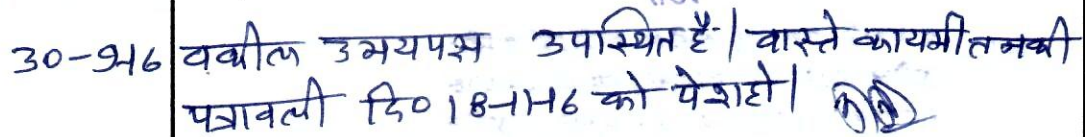 30-9-16 वकील उभयपक्ष उपस्थित है। वास्ते कायमी तनकी
पत्रावली दि० 18-11-16 को पेश हो।